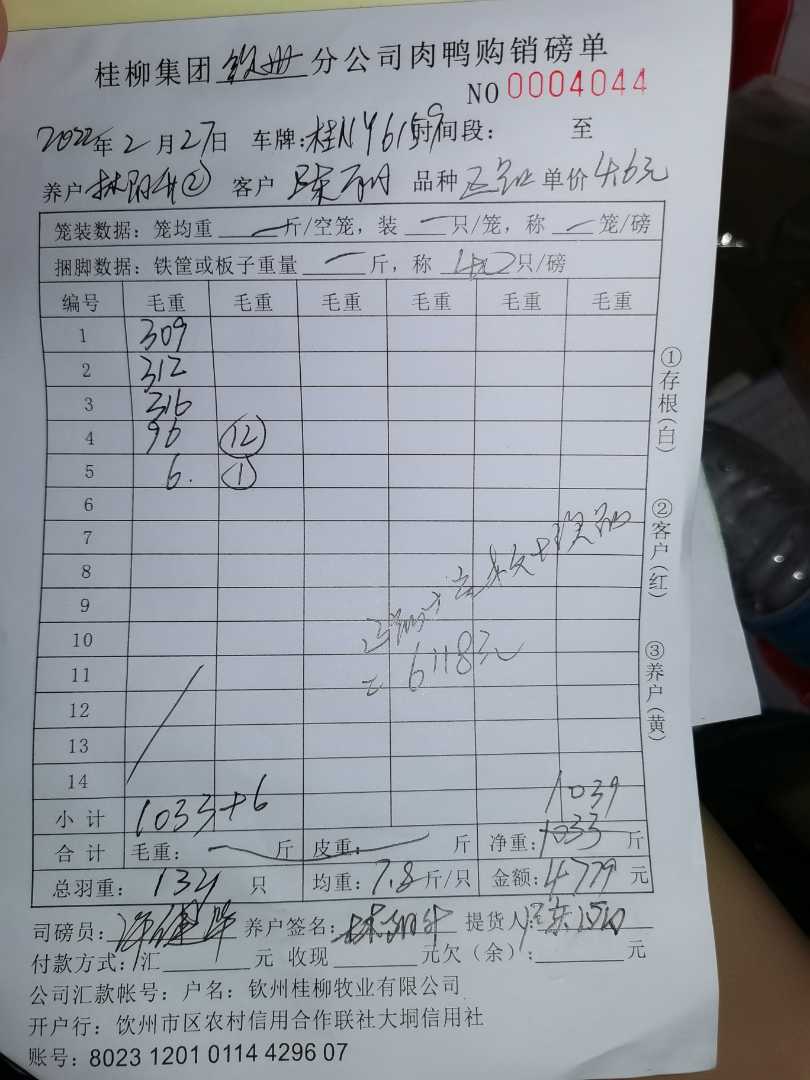 桂柳集团钦州分公司肉鸭购销磅单
NO 0004044
2022年2月27日 车牌:桂NY6159时间段: 至
养户 ② 客户 陈 品种 单价4.6元
笼装数据:笼均重 一 斤/空笼,装 一 只/笼,称 一 笼/磅
捆脚数据:铁筐或板子重量 一 斤,称 只/磅
编号 毛重 毛重 毛重 毛重 毛重 毛重
1 309
2 312
3 316
4 96 ⑫
5 6. ①
6
7
8
9
10
11
12
13
14
6118元
小计 1033+6 1039
合计 毛重: 斤 皮重: 斤 净重:1033斤
总羽重: 134 只 均重:7.8斤/只 金额:4779元
司磅员: 养户签名: 提货人:
付款方式:汇 元 收现 元欠(余): 元
公司汇款帐号:户名:钦州桂柳牧业有限公司
开户行:钦州市区农村信用合作联社大垌信用社
账号:8023 1201 0114 4296 07
①存根(白)
②客户(红)
③养户(黄)